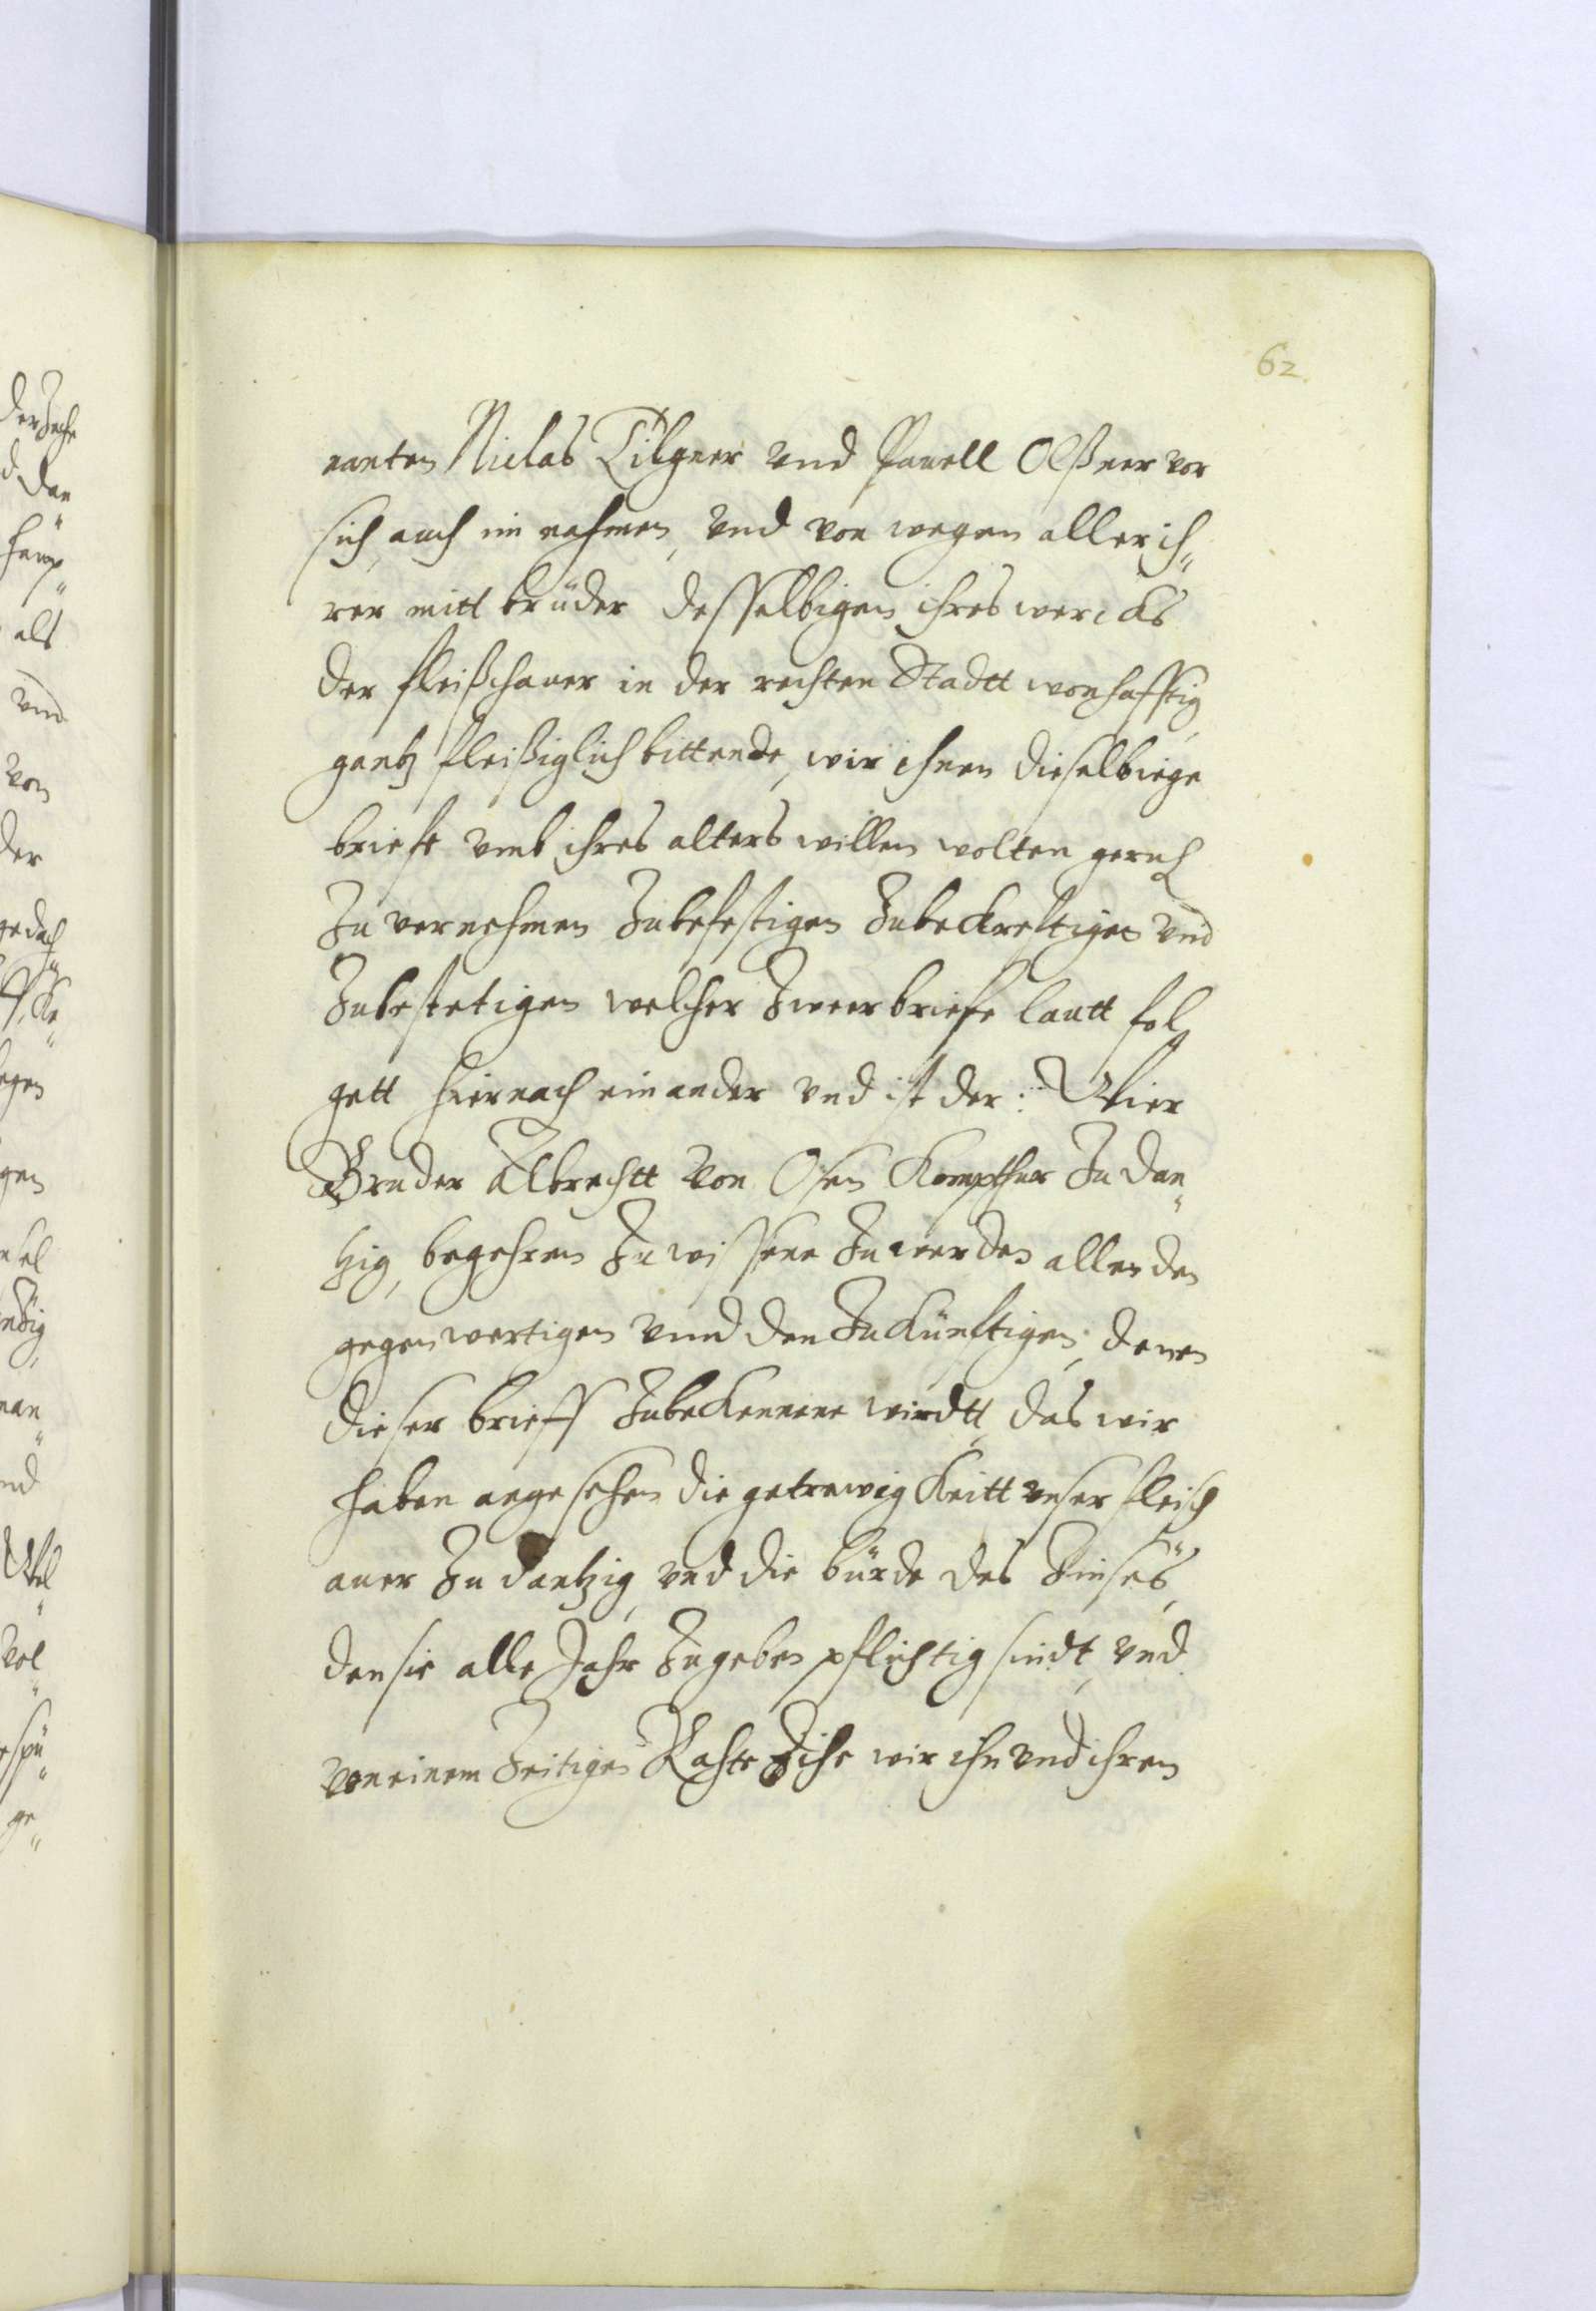 62.
nanten Niclas Tilgner vnd Pauell Olßner vor
sich, auch im nahmen, vnd von wegen aller ih„
rer mitt brüder desselbigen ihres wercks
der fleischauer in der rechten Stadtt wonhafftig
gantz fleißiglich bittende, wir ihnen dieselbiege
briefe vmb ihres alters willen wolten geruh
Zu vernehmen Zubefestigen Zubekrefftigen vnd
Zubestetigen welcher Zweer briefe lautt fol
gett hiernach einander vnd ist der: Wier
Bruder Albrechtt von Osen Kompthur Zu Dan„
tzig, begehren Zu wissene Zu werden allen den
gegenwertigen vnnd den Zukünftigen, denen
dieser brieff Zubekennene wirdtt, das wir
haben angesehen die getrewigkeitt vnser fleisch
auer Zu dantzig, vnd die bürde des Zinses,
den sie alle Jahr Zugeben pflichtig sindt, vnd
von einem Zeitigen Rahte Zihe wir ihn vnd ihren
der Zeche
d dan
als
vnd
von
der
gedach
egen
gen
sel
ndig,
man„
nd
Wel„
vol„
ge„